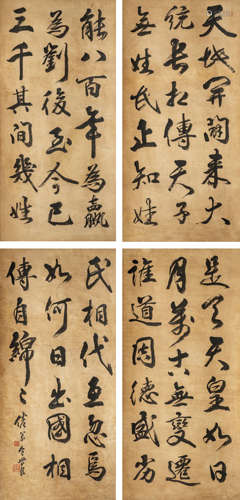 天地開闢來大
統長相傳天子
無姓氏止知姓
是天天皇如日
月萬古無變遷
誰道周德盛劣
能八百年為嬴
為劉後至今已
三千其間幾姓
氏相代互忽焉
如何日出國相
傳自綿〻